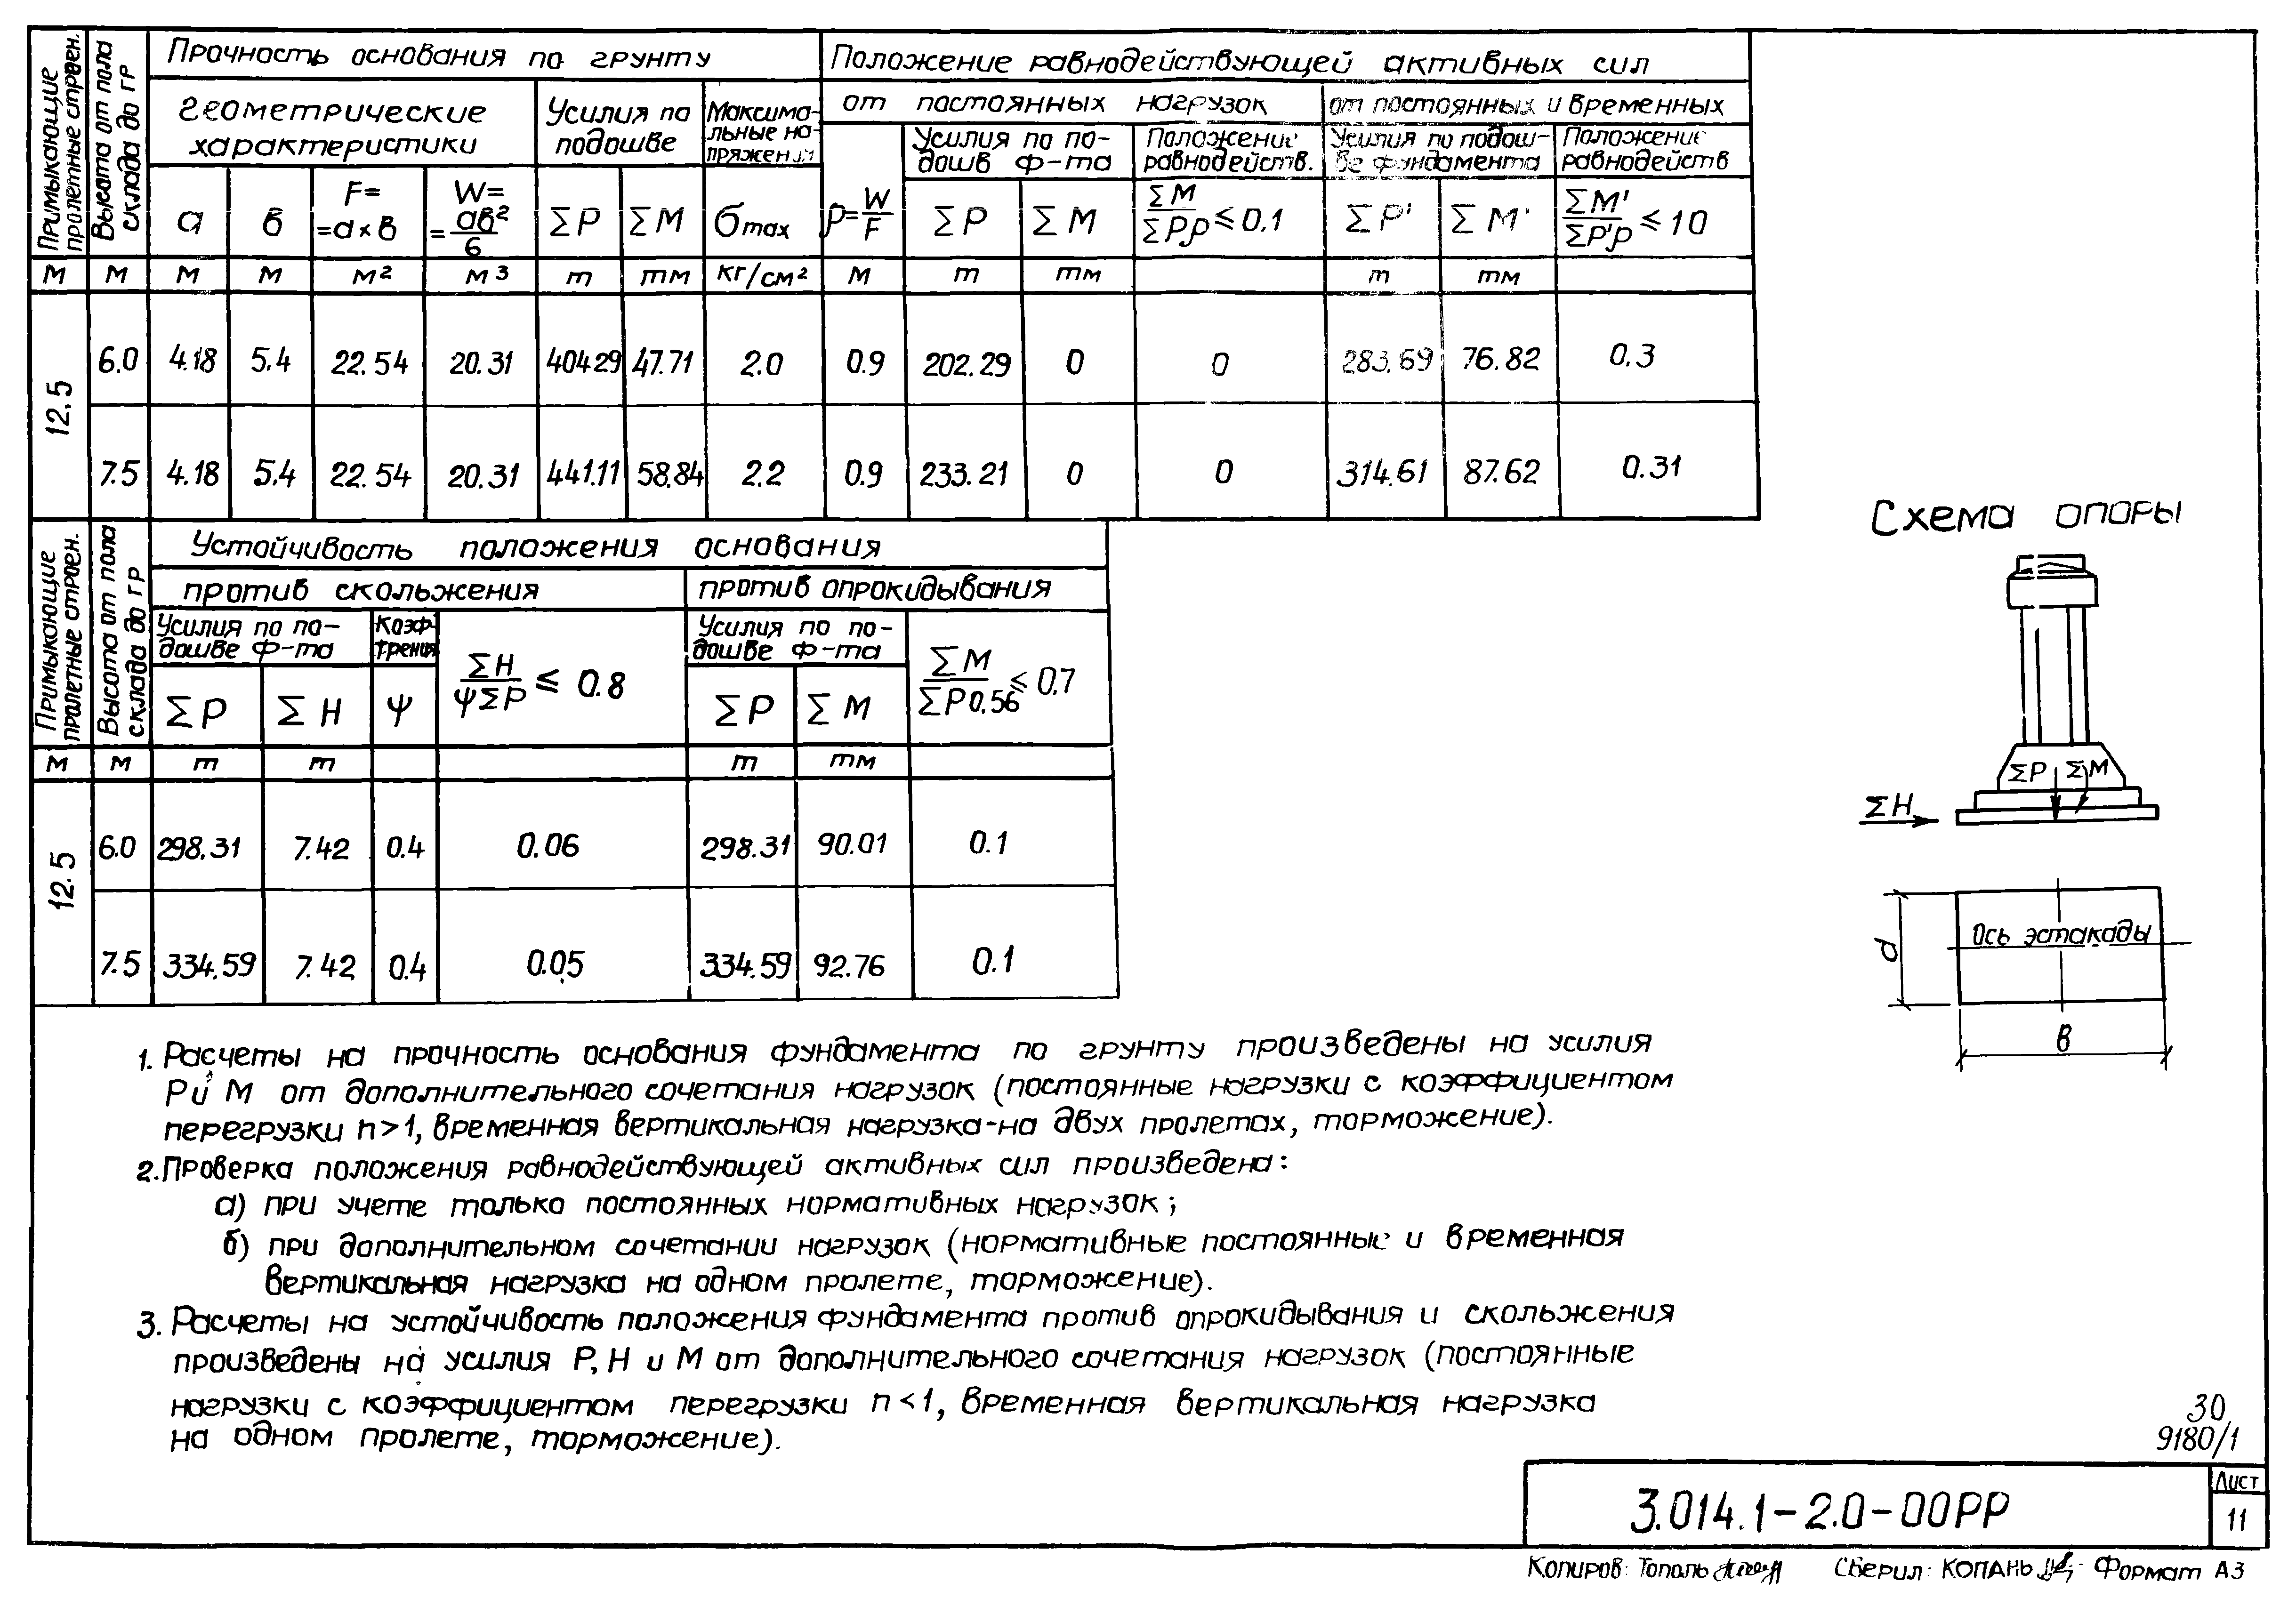 Примыкающие пролетные строен.
Высота от пола склада до гр
Прочность основания по грунту
Положение равнодействующей активных сил
геометрические характеристики
Усилия по подошве
Максима-
льные на-
пряжения
от постоянных нагрузок
от постоянных и временных
Усилия по по-
дошв ф-та
Положение
равнодейств.
Усилия по подош-
ве фундамента
Положение
равнодейств
а в F= =а×в W= =ав²/6 ΣP ΣM σmax ρ=W/F ΣP ΣM ΣM/ΣPρ ≤ 0.1 ΣP' ΣM' ΣM'/ΣP'ρ ≤ 10
м м м м м² м³ т тм кг/см² м т тм т тм
12.5
6.0 4.18 5.4 22.54 20.31 404.29 47.71 2.0 0.9 202.29 0 0 283.69 76.82 0.3
7.5 4.18 5.4 22.54 20.31 441.11 58.84 2.2 0.9 233.21 0 0 314.61 87.62 0.31
Примыкающие пролетные строен.
Высота от пола склада до гр
Устойчивость положения основания
против скольжения
против опрокидывания
Усилия по по-
дошве ф-та
Коэф
трения
ΣH/ψΣP ≤ 0.8
Усилия по по-
дошве ф-та
ΣM/ΣP0.56 ≤ 0.7
ΣP ΣH ψ ΣP ΣM
м м т т т тм
12.5
6.0 298.31 7.42 0.4 0.06 298.31 90.01 0.1
7.5 334.59 7.42 0.4 0.05 334.59 92.76 0.1
Схема опоры
ΣP ΣM
ΣH
Ось эстакады
а
в
1. Расчеты на прочность основания фундамента по грунту произведены на усилия
P и M от дополнительного сочетания нагрузок (постоянные нагрузки с коэффициентом
перегрузки n>1, временная вертикальная нагрузка-на двух пролетах, торможение).
2. Проверка положения равнодействующей активных сил произведена:
а) при учете только постоянных нормативных нагрузок;
б) при дополнительном сочетании нагрузок (нормативные постоянные и временная
вертикальная нагрузка на одном пролете, торможение).
3. Расчеты на устойчивость положения фундамента против опрокидывания и скольжения
произведены на усилия P, H и M от дополнительного сочетания нагрузок (постоянные
нагрузки с коэффициентом перегрузки n<1, временная вертикальная нагрузка
на одном пролете, торможение).
30
9180/1
3.014.1-2.0-00РР
Лист
11
Копиров: Тополь
Сверил: КОПАНЬ
Формат А3